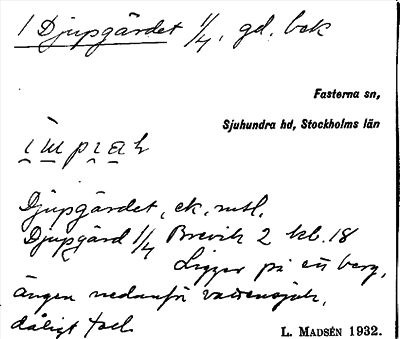 1 Djupgärdet 1/4, gd. bok
Fasterna sn,
Sjuhundra hd, Stockholms län
Djupgärdet, ek. mtl.
Djupgärd 1/4 Brevik 2 kb. 18
Ligger på ett berg,
ängen nedanför
dåligt
L. MADSÉN 1932.